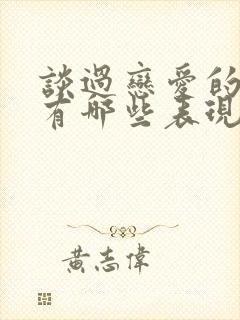 談過戀愛的
有哪些表現
黃志偉